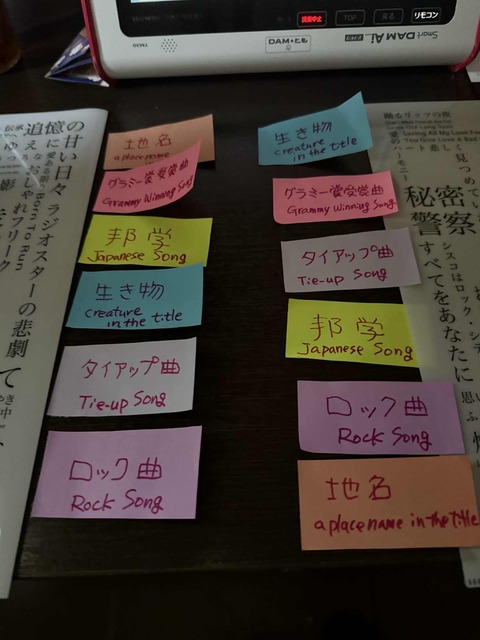 演奏中止
TOP
戻る
リモコン
DAM★とも
Smart DAM Ai
の甘い日々 ラジオスターの悲劇
Born To Run
地名
a place name
グラミー賞受賞曲
Grammy Winning Song
邦学
Japanese Song
生き物
creature
in the title
タイアップ曲
Tie-up Song
ロック曲
Rock Song
生き物
creature
in the title
グラミー賞受賞曲
Grammy Winning Song
タイアップ曲
Tie-up Song
邦学
Japanese Song
ロック曲
Rock Song
地名
a place name in the title
踊るリッツの夜
Saving All My Love
You Give Love A Bad
く見つめて
秘密警察
シスコはロック・シティ
すべてをあなたに